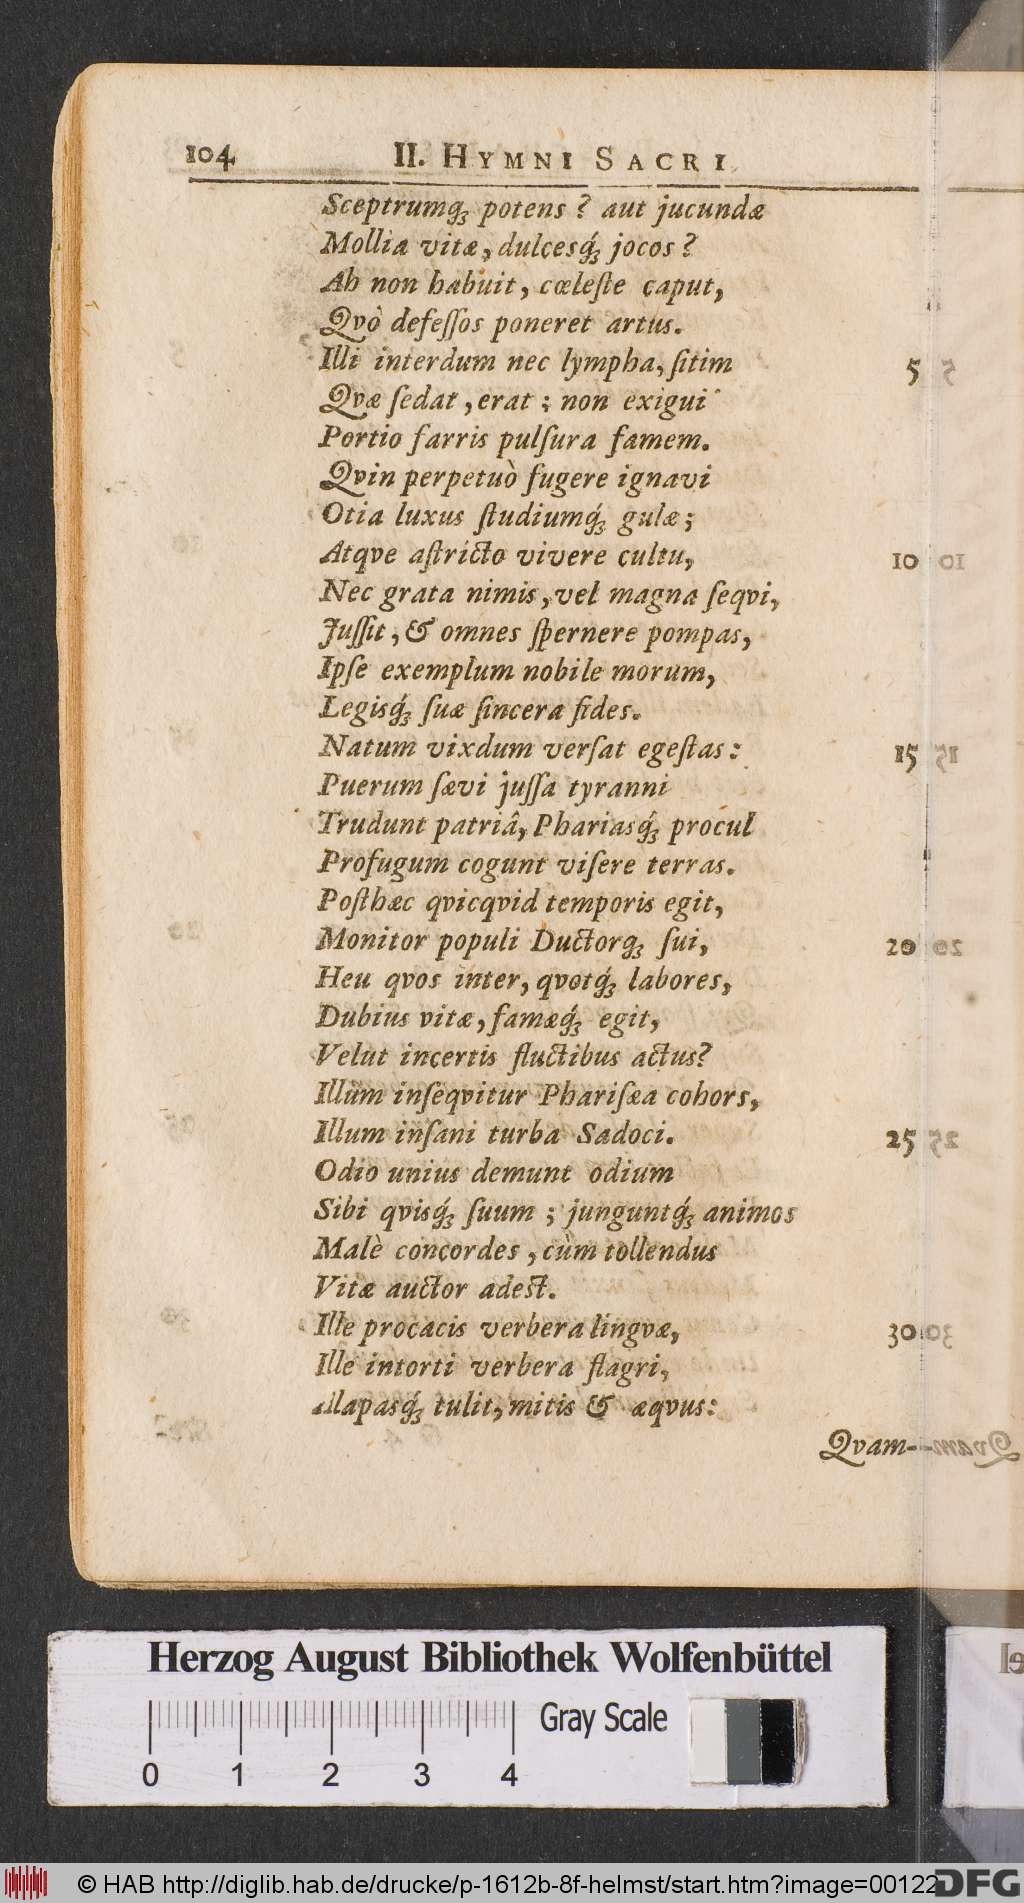 104 II. HYMNI SACRI
Sceptrumq́ꝫ potens ? aut jucundæ
Mollia vitæ, dulcesq́ꝫ jocos ?
Ah non habuit, cœleſte caput,
Qvò defeſſos poneret artus.
Illi interdum nec lympha, ſitim 5
Qvæ ſedat, erat ; non exigui
Portio farris pulſura famem.
Qvin perpetuò fugere ignavi
Otia luxus ſtudiumq́ꝫ gulæ ;
Atqve aſtricto vivere cultu, 10
Nec grata nimis, vel magna ſeqvi,
Juſſit, & omnes ſpernere pompas,
Ipſe exemplum nobile morum,
Legisq́ꝫ ſuæ ſincera fides.
Natum vixdum verſat egeſtas : 15
Puerum ſævi juſſa tyranni
Trudunt patriâ, Phariasq́ꝫ procul
Profugum cogunt viſere terras.
Poſthæc qvicqvid temporis egit,
Monitor populi Ductorqꝫ ſui, 20
Heu qvos inter, qvotq́ꝫ labores,
Dubius vitæ, famæq́ꝫ egit,
Velut incertis fluctibus actus?
Illum inſeqvitur Phariſæa cohors,
Illum inſani turba Sadoci. 25
Odio unius demunt odium
Sibi qvisq́ꝫ ſuum ; junguntq́ꝫ animos
Malè concordes, cùm tollendus
Vitæ auctor adeſt.
Ille procacis verbera lingvæ, 30
Ille intorti verbera flagri,
Alapasq́ꝫ tulit, mitis & æqvus:
Qvam-
Herzog August Bibliothek Wolfenbüttel
Gray Scale
0 1 2 3 4
© HAB http://diglib.hab.de/drucke/p-1612b-8f-helmst/start.htm?image=00122
DFG